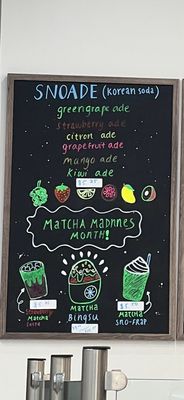 SNOADE (korean soda)
greengrape ade
strawberry ade
citron ade
grapefruit ade
mango ade
kiwi ade
MATCHA MADNNES
MONTH!
Strawberry
Matcha
MATCHA
BINGSU
MATCHA
SNO-FRAP